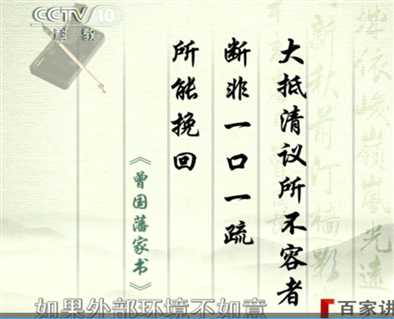 CCTV 10
科教
大抵清议所不容者
断非一口一疏
所能挽回
《曾国藩家书》
如果外部环境不如意
百家讲